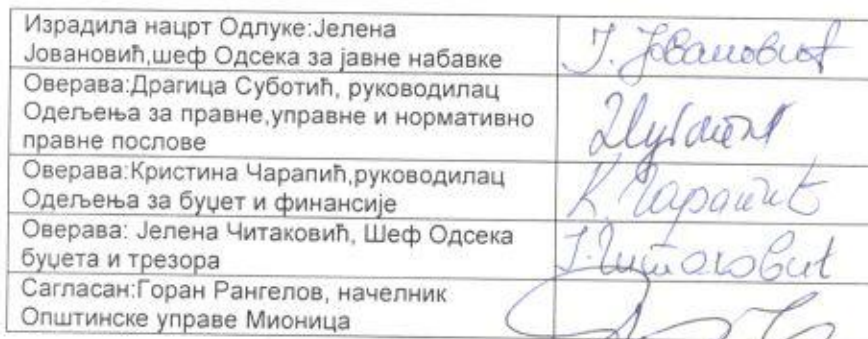 Израдила нацрт Одлуке:Јелена
Јовановић,шеф Одсека за јавне набавке
Ј. Јовановић
Оверава:Драгица Суботић, руководилац
Одељења за правне,управне и нормативно
правне послове
Оверава:Кристина Чарапић,руководилац
Одељења за буџет и финансије
К. Чарапић
Оверава: Јелена Читаковић, Шеф Одсека
буџета и трезора
Ј. Читаковић
Сагласан:Горан Рангелов, начелник
Општинске управе Мионица